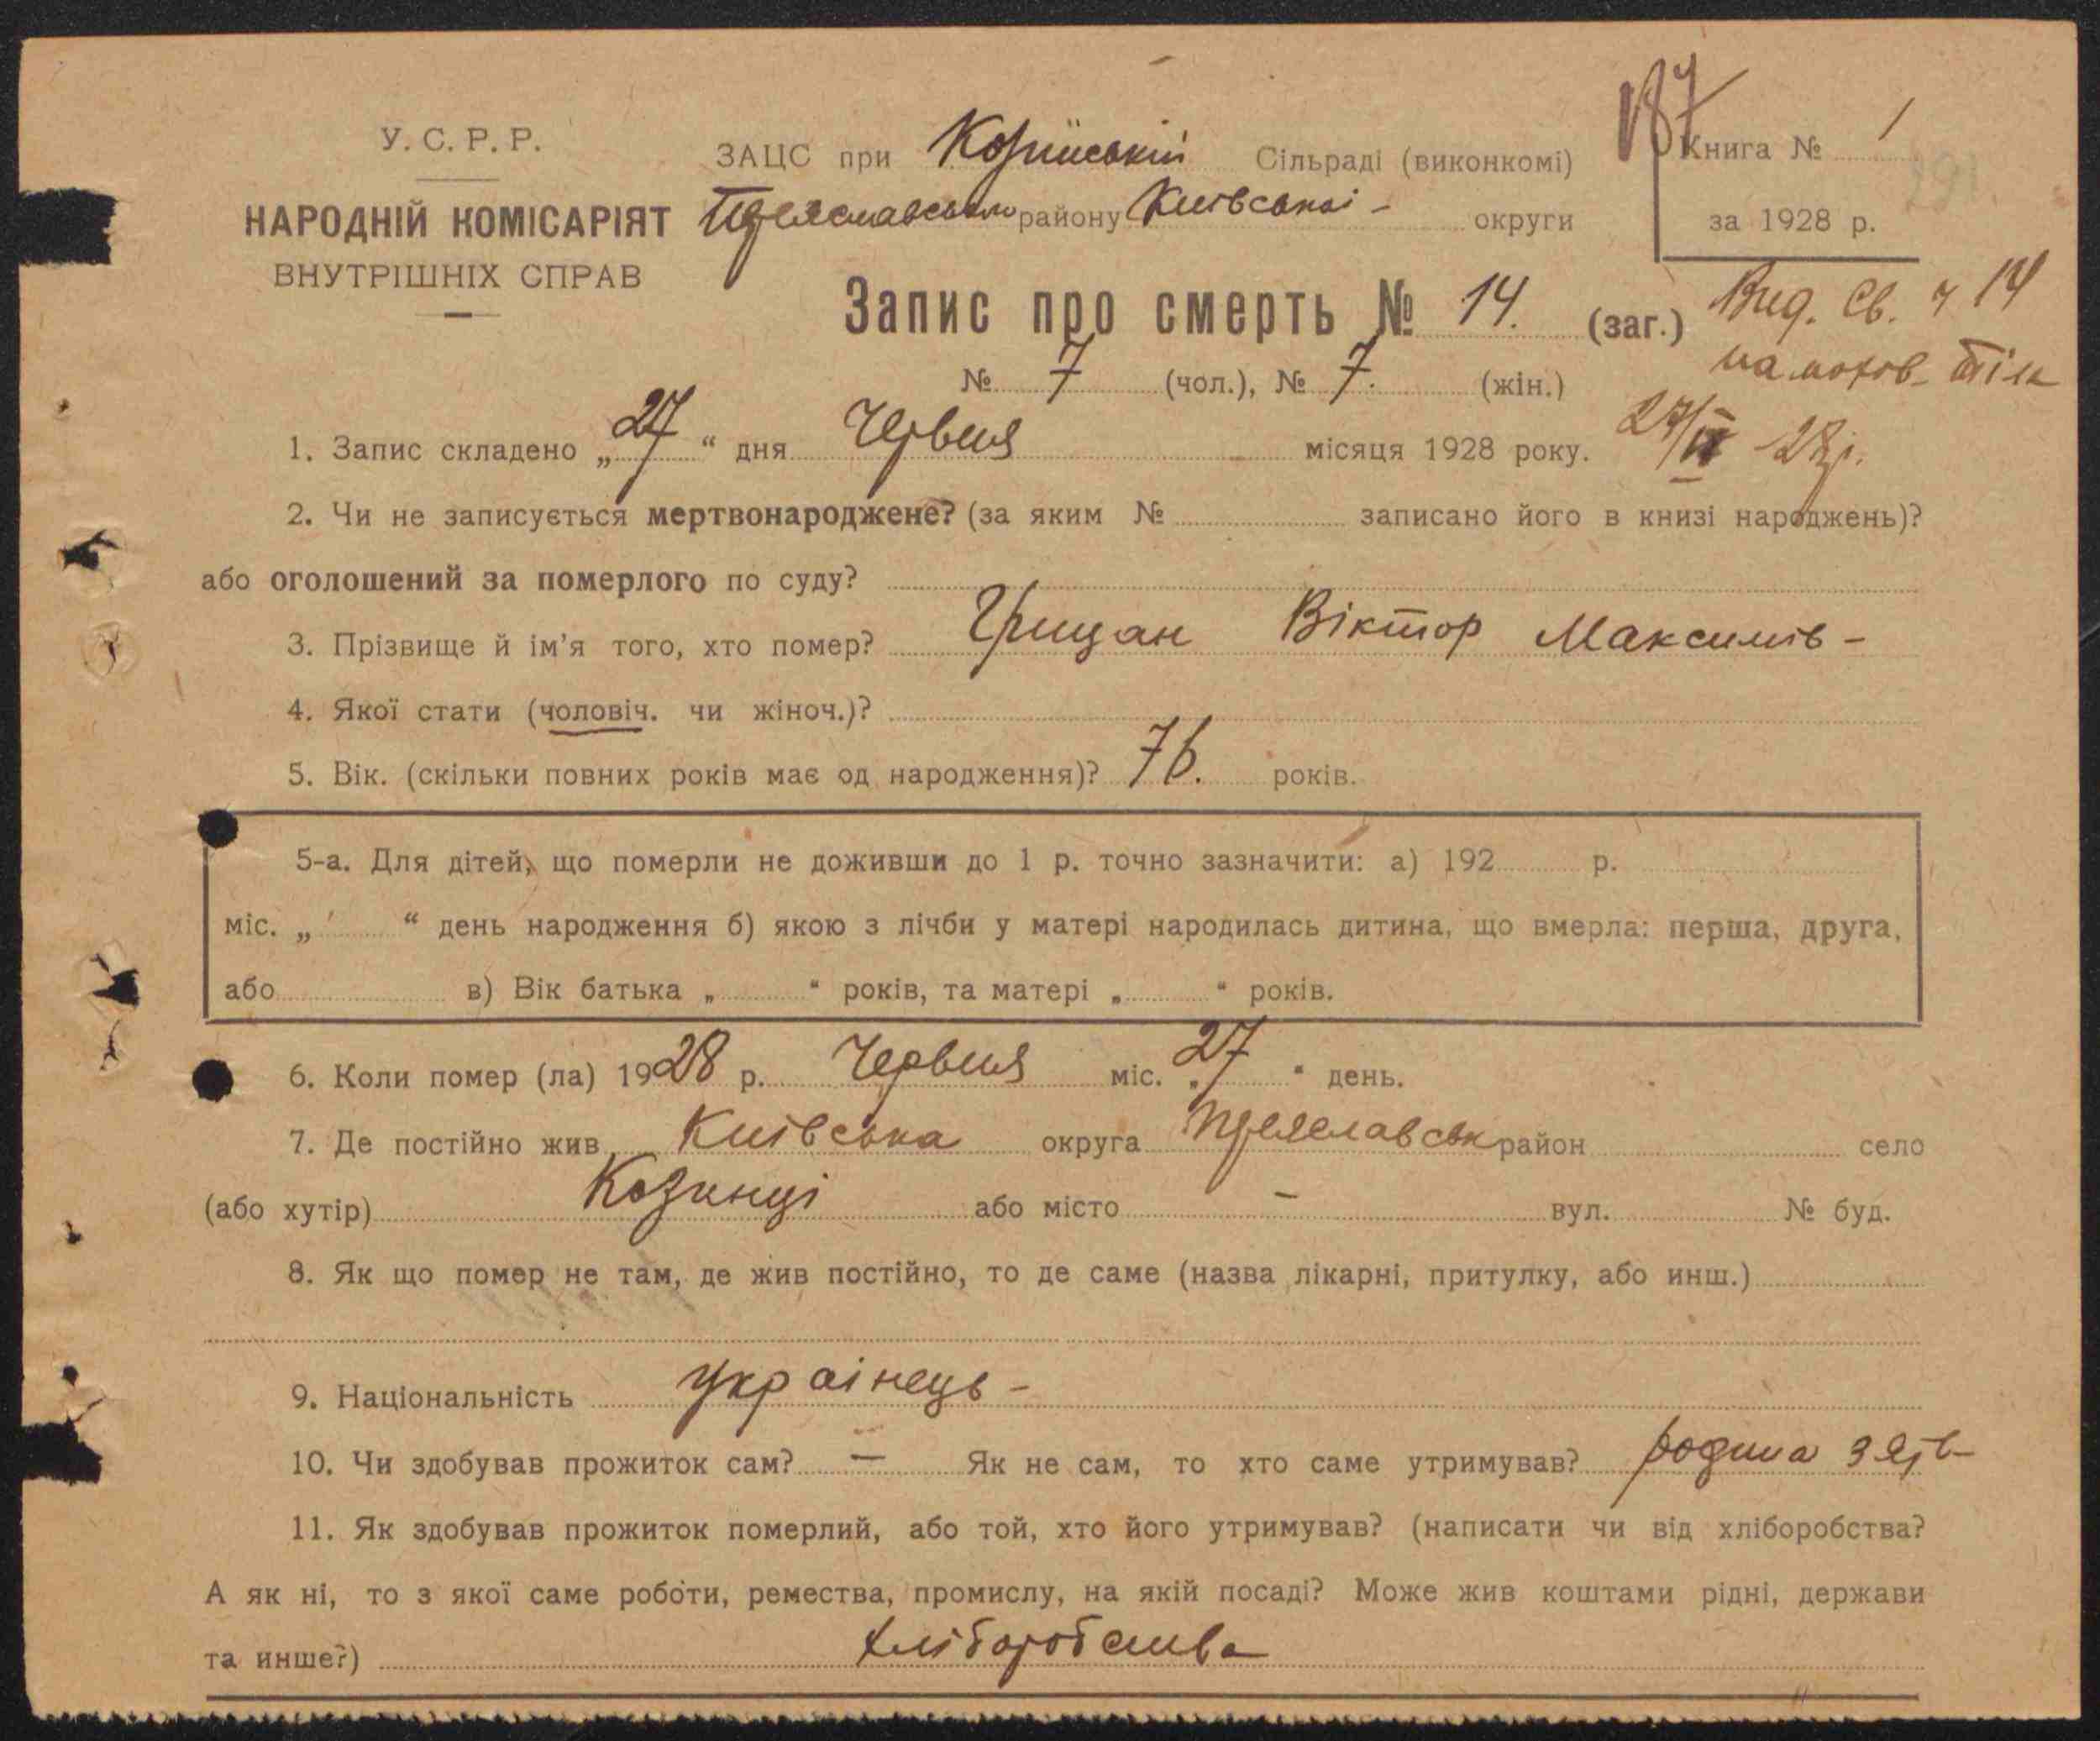 У. С. Р. Р.
НАРОДНІЙ КОМІСАРІЯТ
ВНУТРІШНІХ СПРАВ
ЗАЦС при Сільраді (виконкомі)
району Київської - округи
187
Книга № 1
за 1928 р.
Запис про смерть № 14. (заг.)
№ 7 (чол.), № 7. (жін.)
Вид. Св. 14
27/VI 28р.
1. Запис складено „27“ дня Червня місяця 1928 року.
2. Чи не записується мертвонароджене? (за яким № записано його в книзі народжень)?
або оголошений за померлого по суду?
3. Прізвище й ім'я того, хто помер? Грицан Віктор Максимів -
4. Якої стати (чоловіч. чи жіноч.)?
5. Вік. (скільки повних років має од народження)? 76. років.
5-а. Для дітей, що померли не доживши до 1 р. точно зазначити: а) 192 р.
міс. „ “ день народження б) якою з лічби у матері народилась дитина, що вмерла: перша, друга,
або в) Вік батька „ “ років, та матері „ “ років.
6. Коли помер (ла) 1928 р. Червня міс. „27“ день.
7. Де постійно жив Київська округа Переяславськ район село
(або хутір) Козинці або місто - вул. № буд.
8. Як що помер не там, де жив постійно, то де саме (назва лікарні, притулку, або инш.)
9. Національність Українець -
10. Чи здобував прожиток сам? — Як не сам, то хто саме утримував? родина
11. Як здобував прожиток померлий, або той, хто його утримував? (написати чи від хліборобства?
А як ні, то з якої саме роботи, ремества, промислу, на якій посаді? Може жив коштами рідні, держави
та инше?) хліборобства